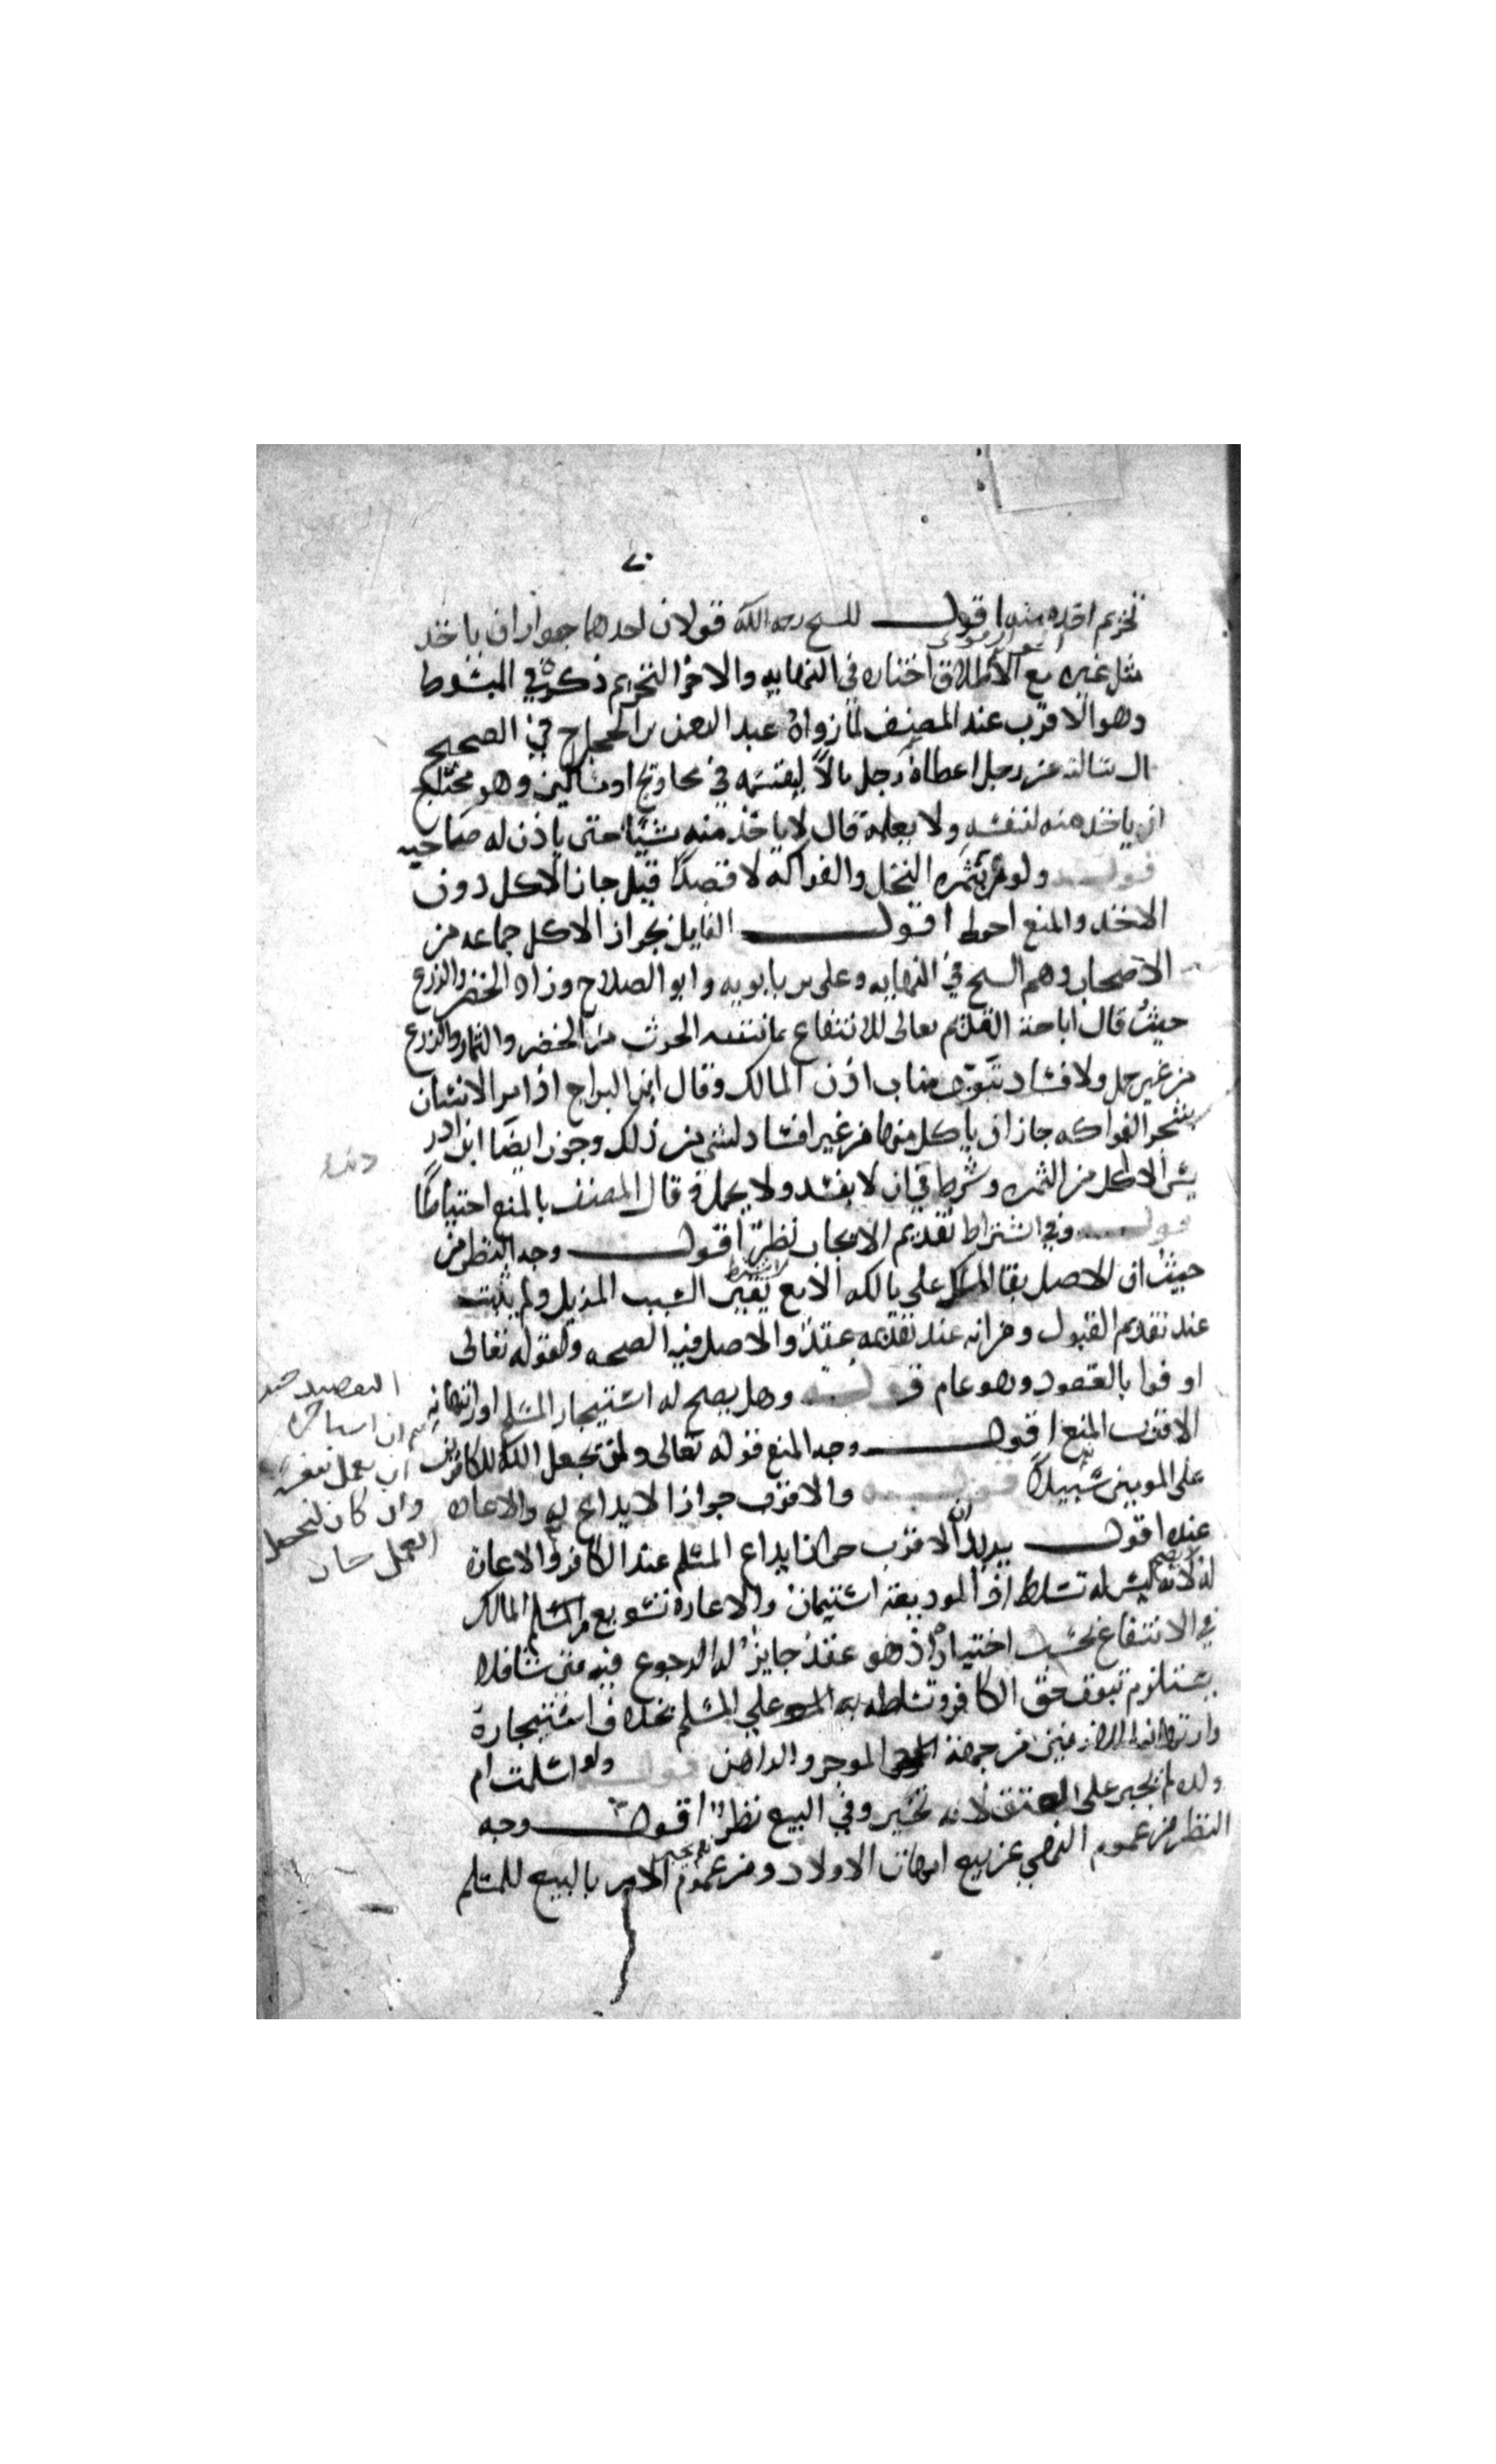 تحريم اخذه منه اقول للشيخ رحمه الله قولان احدهما جواز ان ياخذ
مثل غيره مع الاطلاق اختاره في النهايه والاخر التحريم ذكره في المبسوط
وهو الاقرب عند المصنف لما رواه عبد الرحمن بن الحجاج في الصحيح
قال سالته عن رجل اعطاه رجل مالاً ليقسمه في محاويج او مساكين وهو محتاج
ان ياخذ منه لنفسه ولا يعلمه قال لا ياخذ منه شيئا حتى ياذن له صاحبه
قوله ولو مر بثمره النخل والفواكه لا قصداً قيل جاز الاكل دون
الاخذ والمنع احوط اقول القايل بجواز الاكل جماعه من
الاصحاب وهم الشيخ في النهايه وعلي بن بابويه وابو الصلاح وزاد الخضر والزرع
حيث قال اباحة القديم تعالى للانتفاع بما تنبته الحرث من الخضر والثمار والزرع
من غير حمل ولا فساد تنوب مناب اذن المالك وقال ابن البراج اذا مر الانسان
بشجر الفواكه جاز ان ياكل منها من غير افساد لشي من ذلك وجوز ايضا ابن ادر
يس الاكل من الثمره وشرط في ان لا يفسد ولا يحمل وقال المصنف بالمنع احتياطاً
قوله وفي اشتراط تقديم الايجاب نظر اقول وجه النظر من
حيث ان الاصل بقا الملك على مالكه الا مع يقين السبب المزيل ولم يثبت
عند تقديم القبول ومن انه عند تقدمه عقد والاصل فيه الصحه ولقوله تعالى
اوفوا بالعقود وهو عام قوله وهل يصح له استيجار المسلم او ارتهانه
الاقرب المنع اقول وجه المنع قوله تعالى ولن يجعل الله للكافرين
على المومنين سبيلاً قوله والاقرب جواز الايداع له والاعاره
عنده اقول يريد ان الاقرب جواز ايداع المسلم عند الكافر والاعارة
له لانه ليس له تسلط اذ الوديعة استيمان والاعارة تسويغ من المسلم المالك
في الانتفاع بحسب اختياره اذ هو عقد جايز له الرجوع فيه متى شا فلا
يستلزم ثبوت حق الكافر وتسلطه به على المسلم بخلاف استيجاره
وارتهانه من جهة الموجر والراهن قوله ولو اسلمت ام
ولده لم يجبر على العتق لانه تخير وفي البيع نظر اقول وجه
النظر من عموم النهي عن بيع امهات الاولاد ومن عموم الامر بالبيع للمسلم
وان كان لتحصل
العمل جاز